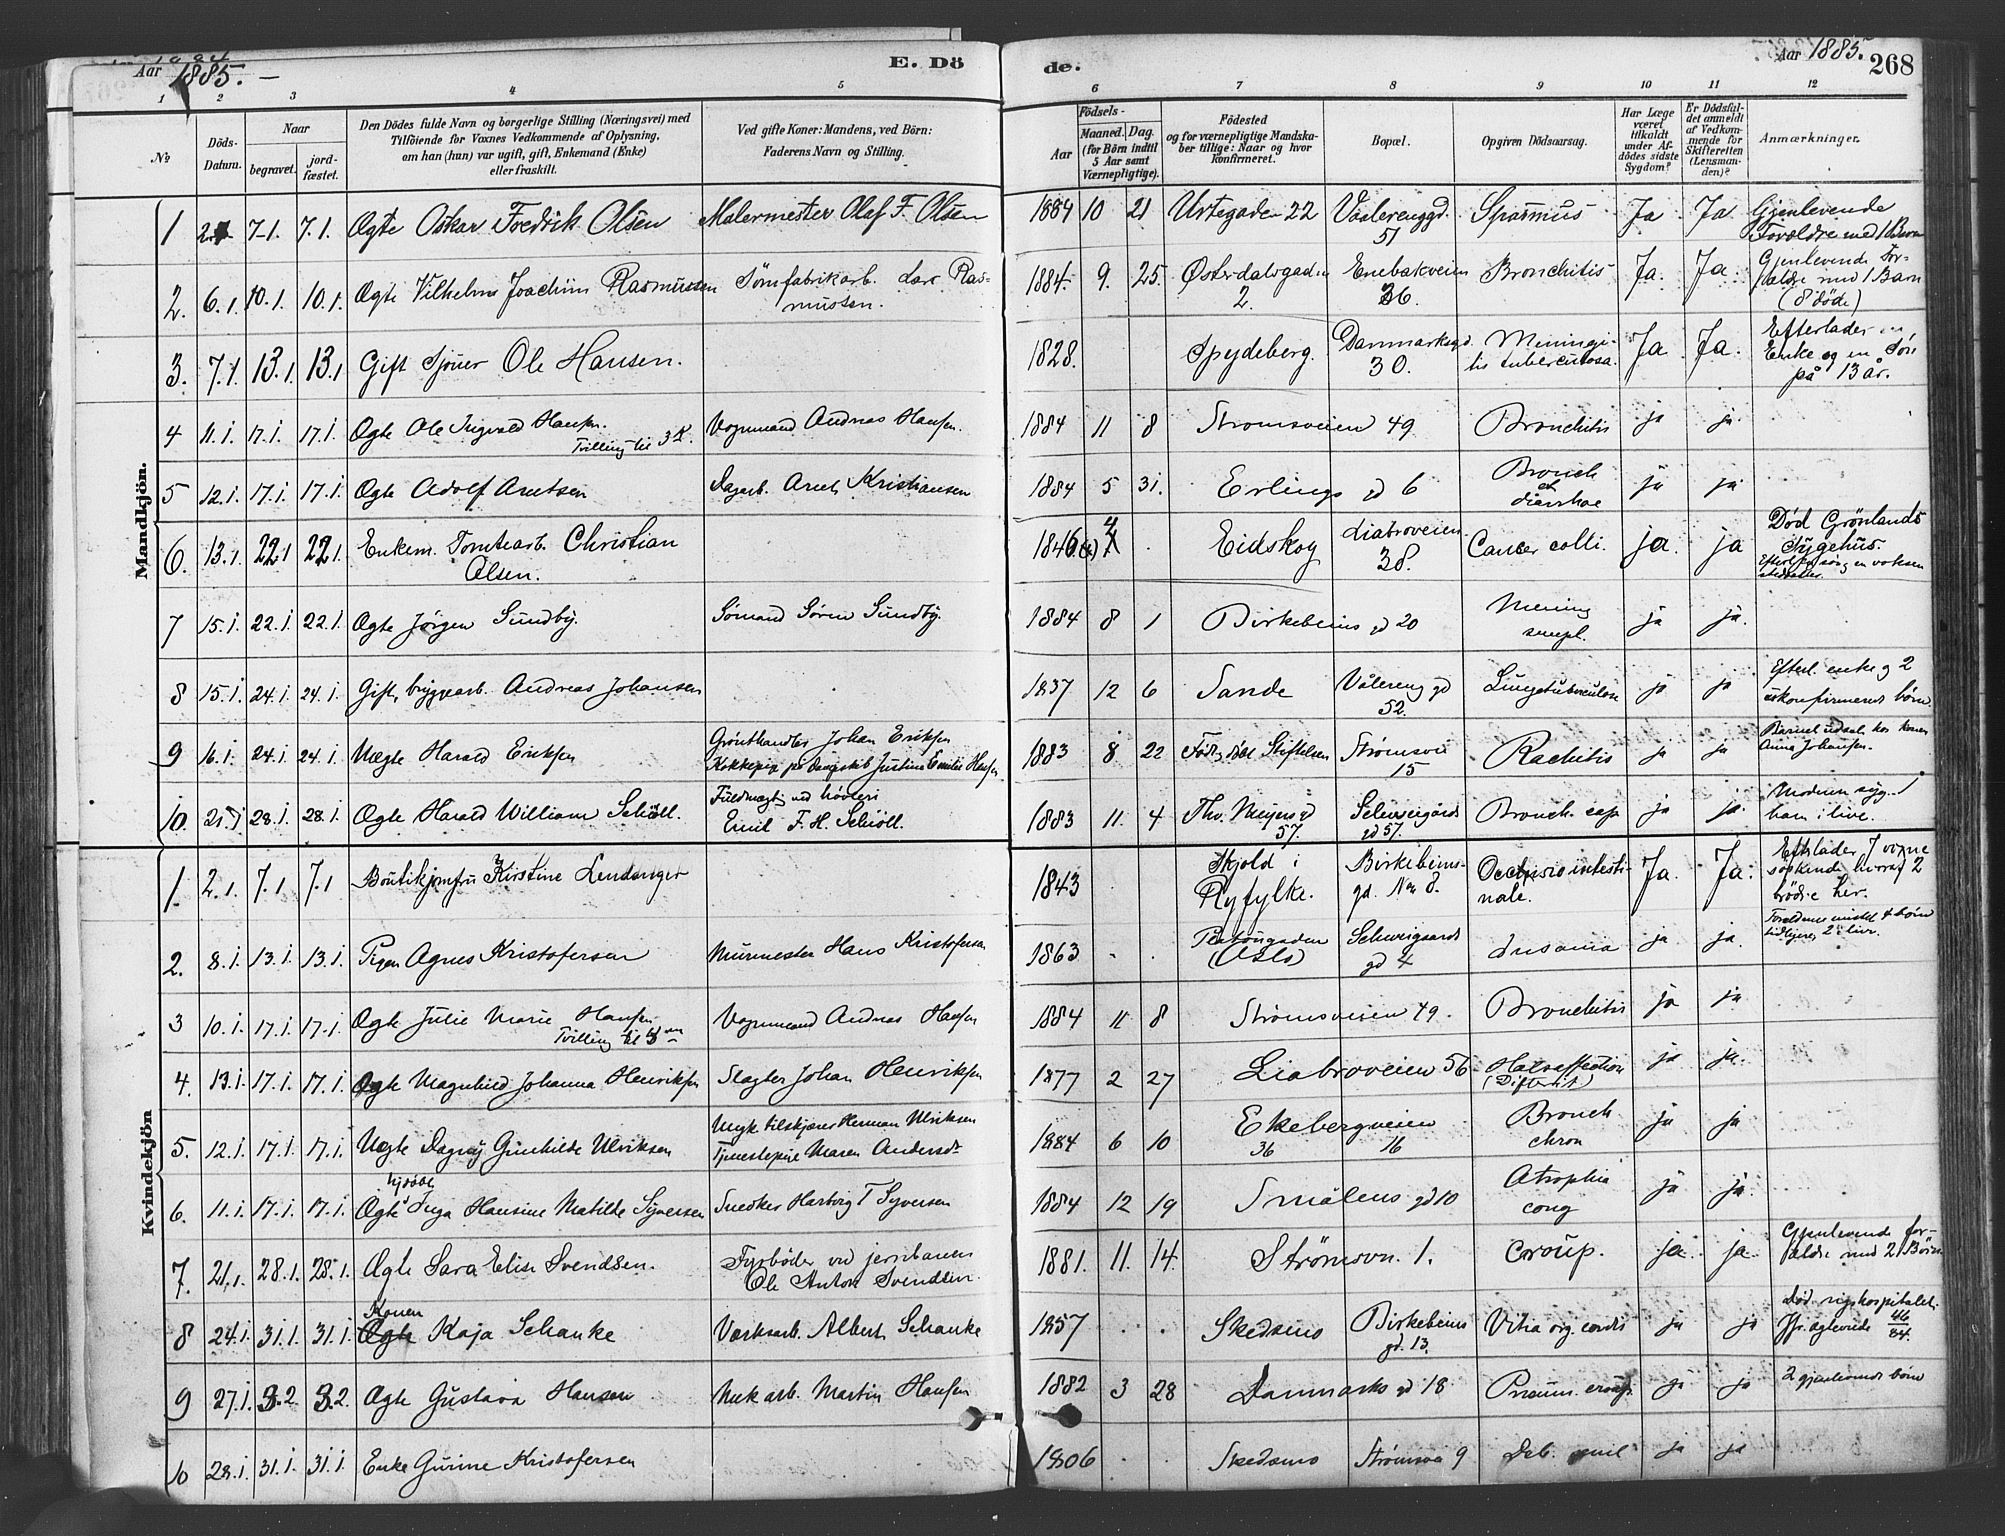 Aar 1885.
E. Döde.
Aar 1885.
268
1 2 3 4 5 6 7 8 9 10 11 12
No
Döds-Datum.
Naar
begravet.
jordfæstet.
Den Dödes fulde Navn og borgerlige Stilling (Næringsvei) med
Tilföiende for Voxnes Vedkommende af Oplysning,
om han (hun) var ugift, gift, Enkemand (Enke)
eller fraskilt.
Ved gifte Koner: Mandens, ved Börn:
Faderens Navn og Stilling.
Födsels-
Aar
Maaned.
Dag.
(for Börn indtil
5 Aar samt
Værnepligtige).
Födested
og for værnepligtige Mandska-
ber tillige: Naar og hvor
konfirmeret.
Bopæl.
Opgiven Dödsaarsag.
Har Læge
været
tilkaldt
under Af-
dödes sidste
Sygdom?
Er Dödsfal-
det anmeldt
af Vedkom-
mende for
Skifteretten
(Lensman-
den)?
Anmærkninger.
Mandkjön.
1 7.1. 7.1. Ægte Oskar Fredrik Olsen Malermester Olaf F. Olsen 1884 10 21 Urtegaden 22 Vaalerenggd. 51 Spasmus Ja Ja Gjenlevende Forældre med 1 Barn
2. 6.1. 10.1. 10.1. Ægte Vilhelm Joachim Rasmussen Sömfabrikarb. Lars Rasmussen. 1884. 9. 25. Österdalsgaden 2. Enebakveien 26. Bronchitis Ja. Ja Gjenlevende Forældre med 1 Barn (8 döde)
3. 7.1. 13.1. 13.1 Gift Sjouer Ole Hansen. 1828. Spydeberg. Danmarksgd. 30. Meningitis tuberculosa. Ja Ja. Efterlader en Enke og en Sön på 13 år.
4 11.1. 17.1. 17.1. Ægte Ole Ingvald Hansen. Tvilling til 3 K. Vognmand Andreas Hansen. 1884 11 8 Strömsveien 49 Bronchitis ja ja.
5 12.1. 17.1. 17.1. Ægte Adolf Arntsen Dagarb. Arnt Kristiansen 1884 5 31. Erlings gd 6 Bronch et diarrhoe ja ja
6. 13.1. 22.1 22.1. Enkem. Tomtearb. Christian Olsen. Eidskog Liabroveien 38. Cancer colli. ja. ja Död Grönlands Sygehus.
7 15.1. 22.1. 22.1. Ægte Jörgen Sundby. Sömand Sören Sundby. 1884 8 1 Birkebeins gd 20 Mening simpl. ja ja.
8 15.1. 24.1. 24.1. Gift, bryggearb. Andreas Johansen 1837 12 6 Sande Vålereng gd 52. Lungetuberculose ja ja Efterl. enke og 2 ukonfirmerede börn.
9 16.1. 24.1. 24.1. Uægte Harald Eriksen Grönthandler Johan Eriksen Kokkepige på dampskib Justine Emilie Hansen 1883 8 22 Föds. Stiftelsen Strömsvei 15 Rachitis ja ja Barnet udsat hos konen Anna Johansen.
10. 21.1 28.1. 28.1. Ægte Harald William Schöll. Fuldmægtig ved Emil F. H. Schöll. 1883 11. 4 Th. Meyers gd 57. Schweigaards gd 57. Bronch. cap ja ja Moderen syg. 1 barn i live.
Kvindekjön
1. 2.1. 7.1 7.1 Boutikjomfru Kirstine Lendanger 1843 Skjold i Ryfylke. Birkebeins-gd. No 8. Occlusio intestinale. Ja. Ja. Efterlader 7 voxne söskende hvoraf 2 brödre her.
2. 8.1. 13.1. 13.1. Pigen Agnes Kristofersen Murmester Hans Kristofersen 1863 . . (Oslo) Schweigaards gd 4 Insania ja ja.
3 10.1. 17.1. 17.1. Ægte Julie Marie Hansen Tvilling til Vognmand Andreas Hansen 1884 11 8 Strömsveien 49. Bronchitis ja ja
4. 13.1. 17.1. 17.1. Ægte Magnhild Johanna Henriksen Slagter Johan Henriksen 1877 2 27 Liabroveien 56 Halsaffection (Difterit) ja ja.
5. 12.1. 17.1. 17.1. Uægte Dagny Gunhilde Ulriksen Ungk. tilskjærer Herman Ulriksen Tjenestepige Maren Andersdt 1884 6 10 Ekebergveien 36 16 Bronch chron ja ja
6. 11.1. 17.1. 17.1. Ægte hjdöbt Inga Hansine Matilde Syversen Snedker Syversen 1884 12 19 Smålens gd 10 Atrophia cong ja ja.
7. 21.1. 28.1. 28.1. Ægte Sara Elise Svendsen. Fyrböder ved jernbanen Ole Anton Svendsen. 1881. 11. 14. Strömsvn. 1. Croup. ja. ja. Gjenlevende forældre med 2 Börn.
8 24.1. 31.1. 31.1. Konen Kaja Schanke Værksarb. Albert Schanke 1857 . . Skedsmo Birkebeins gd. 13. Vitia org. cordis ja ja Död rigshospitalet. 46/84.
9 27.1. 3.2. 3.2. Ægte Gustava Hansen Mek arb. Martin Hansen 1882 3 28 Danmarks gd 18 Pneum. croup. ja ja 2 gjenlevende börn
10 28.1. 31.1. 31.1. Enke Gurine Kristofersen 1806 . . Skedsmo Strömsvei 9 Deb. senil ja ja